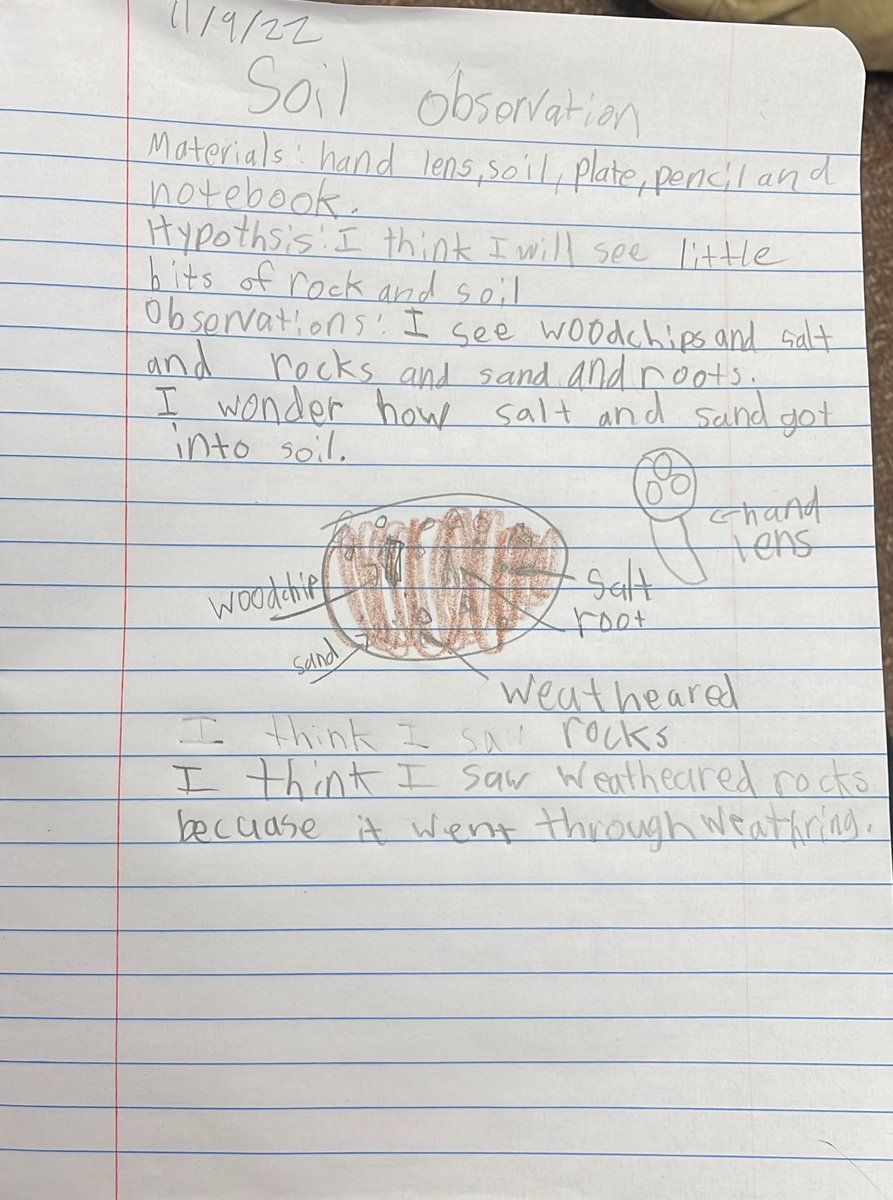 11/9/22
Soil Observation
Materials: hand lens, soil, plate, pencil and
notebook.
Hypothsis: I think I will see little
bits of rock and soil
Observations: I see woodchips and salt
and rocks and sand and roots.
I wonder how salt and sand got
into soil.
hand
lens
woodchip
salt
root
sand
weatheared
rocks
I think I
I think I saw weatheared rocks
becuase it went through weathring.